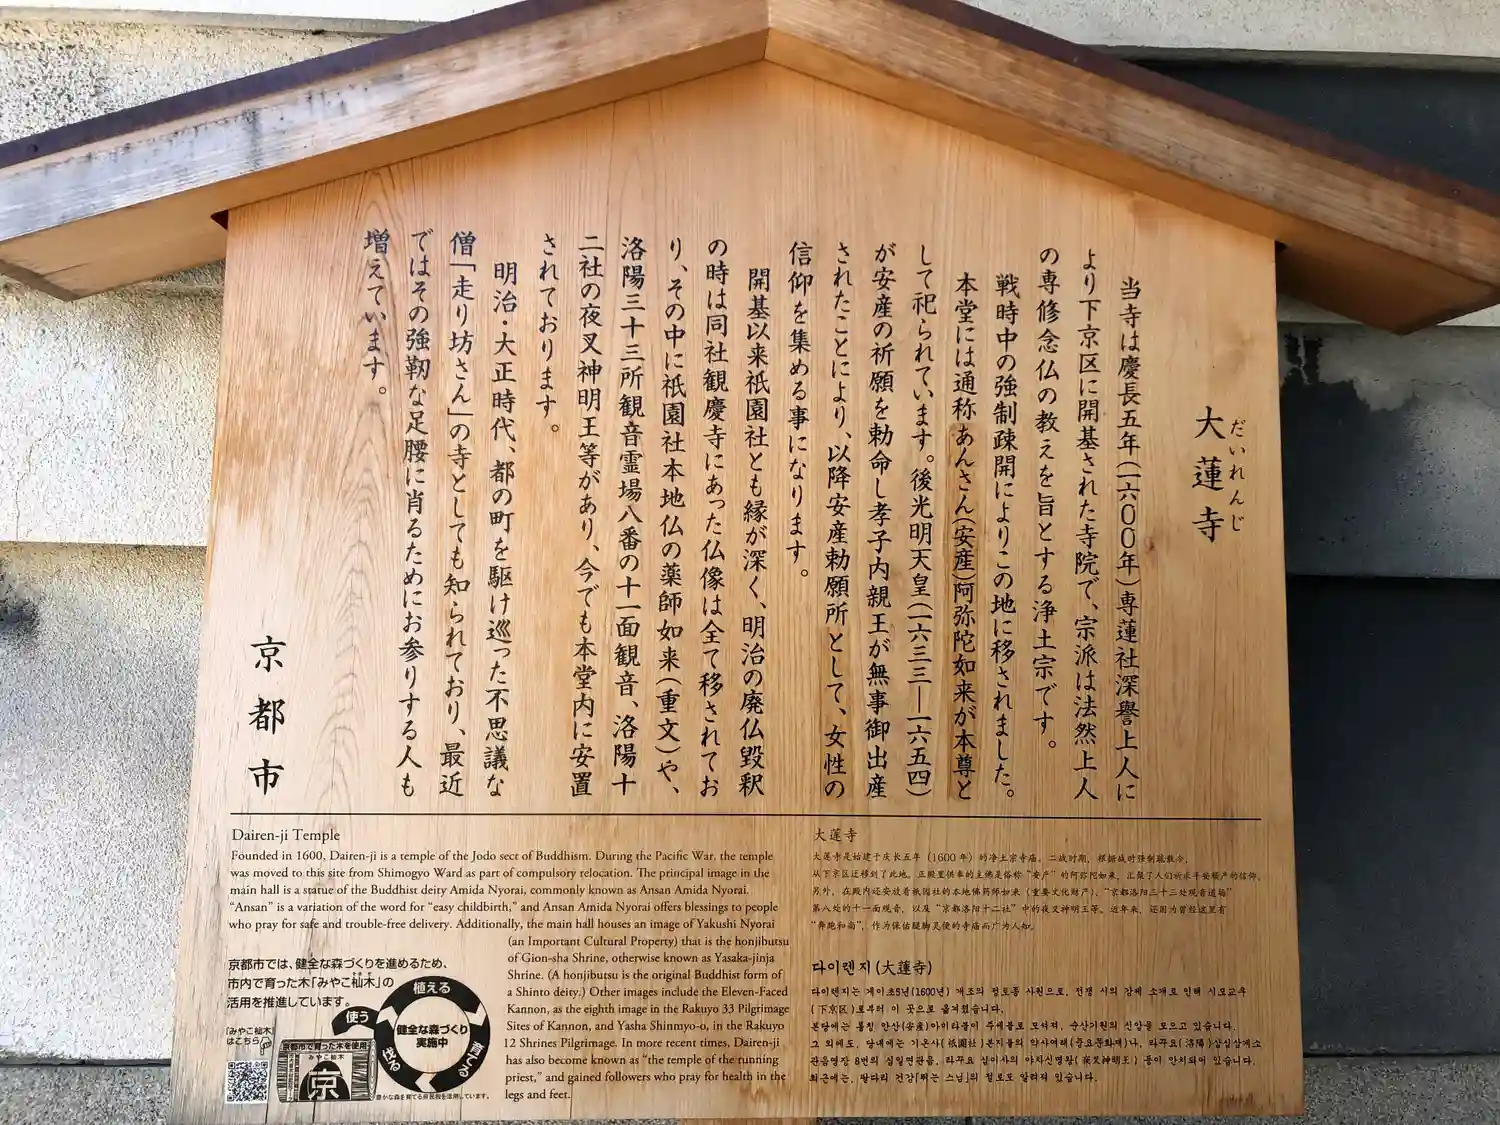 大蓮寺
だいれんじ
当寺は慶長五年(一六〇〇年)専蓮社深誉上人に
より下京区に開基された寺院で、宗派は法然上人
の専修念仏の教えを旨とする浄土宗です。
戦時中の強制疎開によりこの地に移されました。
本堂には通称あんさん(安産)阿弥陀如来が本尊と
して祀られています。後光明天皇(一六三三―一六五四)
が安産の祈願を勅命し孝子内親王が無事御出産
されたことにより、以降安産勅願所として、女性の
信仰を集める事になります。
開基以来祇園社とも縁が深く、明治の廃仏毀釈
の時は同社観慶寺にあった仏像は全て移されてお
り、その中に祇園社本地仏の薬師如来(重文)や、
洛陽三十三所観音霊場八番の十一面観音、洛陽十
二社の夜叉神明王等があり、今でも本堂内に安置
されております。
明治・大正時代、都の町を駆け巡った不思議な
僧「走り坊さん」の寺としても知られており、最近
ではその強靭な足腰に肖るためにお参りする人も
増えています。
京都市
Dairen-ji Temple
Founded in 1600, Dairen-ji is a temple of the Jodo sect of Buddhism. During the Pacific War, the temple
was moved to this site from Shimogyo Ward as part of compulsory relocation. The principal image in the
main hall is a statue of the Buddhist deity Amida Nyorai, commonly known as Ansan Amida Nyorai.
"Ansan" is a variation of the word for "easy childbirth," and Ansan Amida Nyorai offers blessings to people
who pray for safe and trouble-free delivery. Additionally, the main hall houses an image of Yakushi Nyorai
(an Important Cultural Property) that is the honjibutsu
of Gion-sha Shrine, otherwise known as Yasaka-jinja
Shrine. (A honjibutsu is the original Buddhist form of
a Shinto deity.) Other images include the Eleven-Faced
Kannon, as the eighth image in the Rakuyo 33 Pilgrimage
Sites of Kannon, and Yasha Shinmyo-o, in the Rakuyo
12 Shrines Pilgrimage. In more recent times, Dairen-ji
has also become known as "the temple of the running
priest," and gained followers who pray for health in the
legs and feet.
京都市では、健全な森づくりを進めるため、
市内で育った木「みやこ杣木」の
活用を推進しています。
「みやこ杣木」
はこちら
京都市で育った木を使用
みやこ杣木
京
植える
育てる
伐る
使う
健全な森づくり
実施中
豊かな森を育てる府民税を活用しています。
大莲寺
大莲寺是始建于庆长五年（1600 年）的净土宗寺庙。二战时期，根据战时强制疏散令，
从下京区迁移到了此地。正殿里供奉的主佛是俗称“安产”的阿弥陀如来，汇聚了人们祈求平安顺产的信仰。
另外，在殿内还安放着祇园社的本地佛药师如来（重要文化财产）、“京都洛阳三十三处观音道场”
第八处的十一面观音，以及“京都洛阳十二社”中的夜叉神明王等。近年来，还因为曾经这里有
“奔跑和尚”，作为保佑腿脚灵便的寺庙而广为人知。
다이렌지 (大蓮寺)
다이렌지는 게이초5년(1600년) 개조의 정토종 사원으로, 전쟁 시의 강제 소개로 인해 시모교구
(下京区)로부터 이 곳으로 옮겨졌습니다.
본당에는 통칭 안산(安産)아미타불이 주세불로 모셔져, 순산기원의 신앙을 모으고 있습니다.
그 외에도, 당내에는 기온샤(祇園社)본지불의 약사여래(중요문화재)나, 라쿠요(洛陽)삼십삼소
관음영장 8번의 십일면관음, 라쿠요 십이사의 야차신명왕(夜叉神明王) 등이 안치되어 있습니다.
최근에는, 팔다리 건강「뛰는 스님」의 절로도 알려져 있습니다.